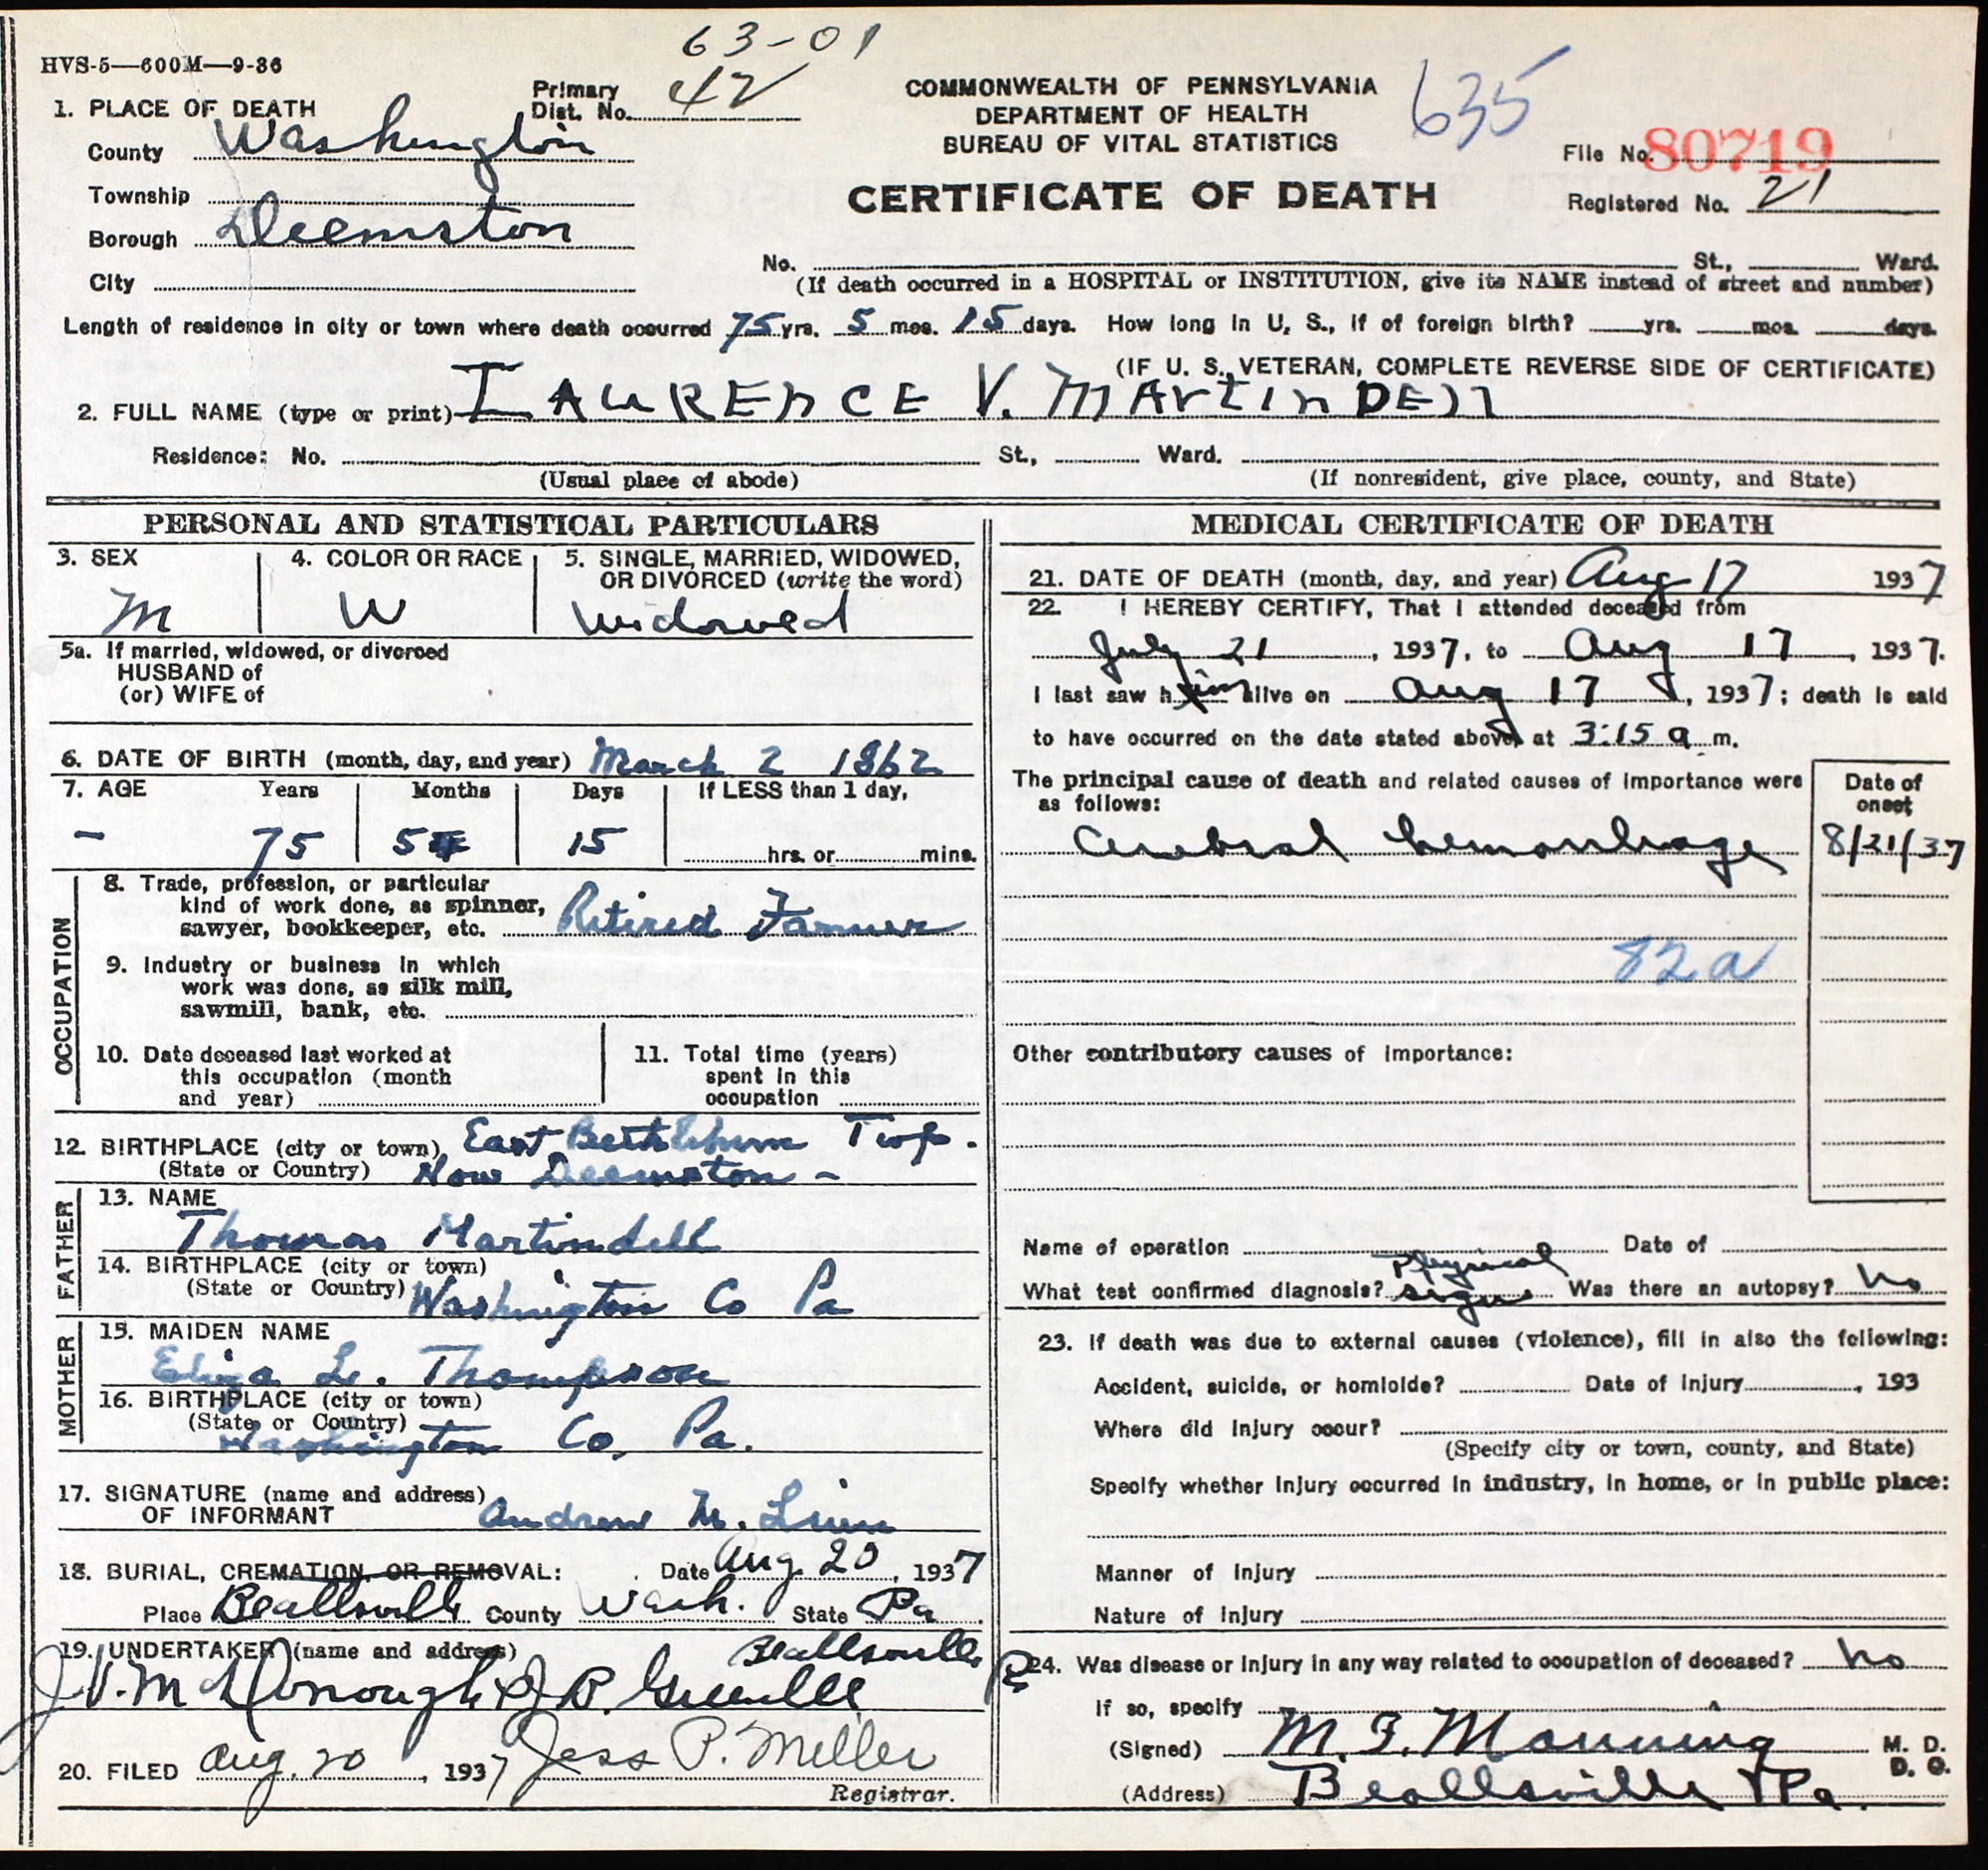 63-01
HVS-5—600M—9-36
Primary
Dist. No. 42
COMMONWEALTH OF PENNSYLVANIA
DEPARTMENT OF HEALTH
BUREAU OF VITAL STATISTICS
635
CERTIFICATE OF DEATH
File No. 80719
Registered No. 21
1. PLACE OF DEATH
County Washington
Township
Borough Deemston
City
No. St., Ward.
(If death occurred in a HOSPITAL or INSTITUTION, give its NAME instead of street and number)
Length of residence in city or town where death occurred 75 yrs. 5 mos. 15 days. How long in U. S., if of foreign birth? yrs. mos. days.
(IF U. S. VETERAN, COMPLETE REVERSE SIDE OF CERTIFICATE)
2. FULL NAME (type or print) LAURENCE V. MARTINDELL
Residence: No. St., Ward.
(Usual place of abode) (If nonresident, give place, county, and State)
PERSONAL AND STATISTICAL PARTICULARS
3. SEX 4. COLOR OR RACE 5. SINGLE, MARRIED, WIDOWED,
OR DIVORCED (write the word)
M W Widowed
5a. If married, widowed, or divorced
HUSBAND of
(or) WIFE of
6. DATE OF BIRTH (month, day, and year) March 2 1862
7. AGE Years Months Days If LESS than 1 day,
- 75 5 15 hrs. or mins.
OCCUPATION
8. Trade, profession, or particular
kind of work done, as spinner,
sawyer, bookkeeper, etc. Retired Farmer
9. Industry or business in which
work was done, as silk mill,
sawmill, bank, etc.
10. Date deceased last worked at
this occupation (month
and year)
11. Total time (years)
spent in this
occupation
12. BIRTHPLACE (city or town) East Bethlehem Twp.
(State or Country) Now Deemston -
FATHER
13. NAME
Thomas Martindell
14. BIRTHPLACE (city or town)
(State or Country) Washington Co Pa
MOTHER
15. MAIDEN NAME
Eliza L. Thompson
16. BIRTHPLACE (city or town)
(State or Country)
Washington Co, Pa.
17. SIGNATURE (name and address)
OF INFORMANT Andrew M.
18. BURIAL, CREMATION, OR REMOVAL: Date Aug. 20, 1937
Place Beallsville County Wash. State Pa
19. UNDERTAKER (name and address) Beallsville Pa
J.V. McDonough & J.B. Greenlee
20. FILED Aug. 20, 1937 Jess P. Miller
Registrar.
MEDICAL CERTIFICATE OF DEATH
21. DATE OF DEATH (month, day, and year) Aug 17 1937
22. I HEREBY CERTIFY, That I attended deceased from
July 21, 1937, to Aug 17, 1937.
I last saw him alive on Aug 17, 1937; death is said
to have occurred on the date stated above, at 3:15 a m.
The principal cause of death and related causes of importance were
as follows:
Date of
onset
Cerebral hemorrhage 8/21/37
82a
Other contributory causes of importance:
Name of operation Date of
What test confirmed diagnosis? Physical signs Was there an autopsy? no
23. If death was due to external causes (violence), fill in also the following:
Accident, suicide, or homicide? Date of injury , 193
Where did injury occur?
(Specify city or town, county, and State)
Specify whether injury occurred in industry, in home, or in public place:
Manner of injury
Nature of injury
24. Was disease or injury in any way related to occupation of deceased? no
If so, specify
(Signed) M. F. Manning M. D.
D. O.
(Address) Beallsville Pa.